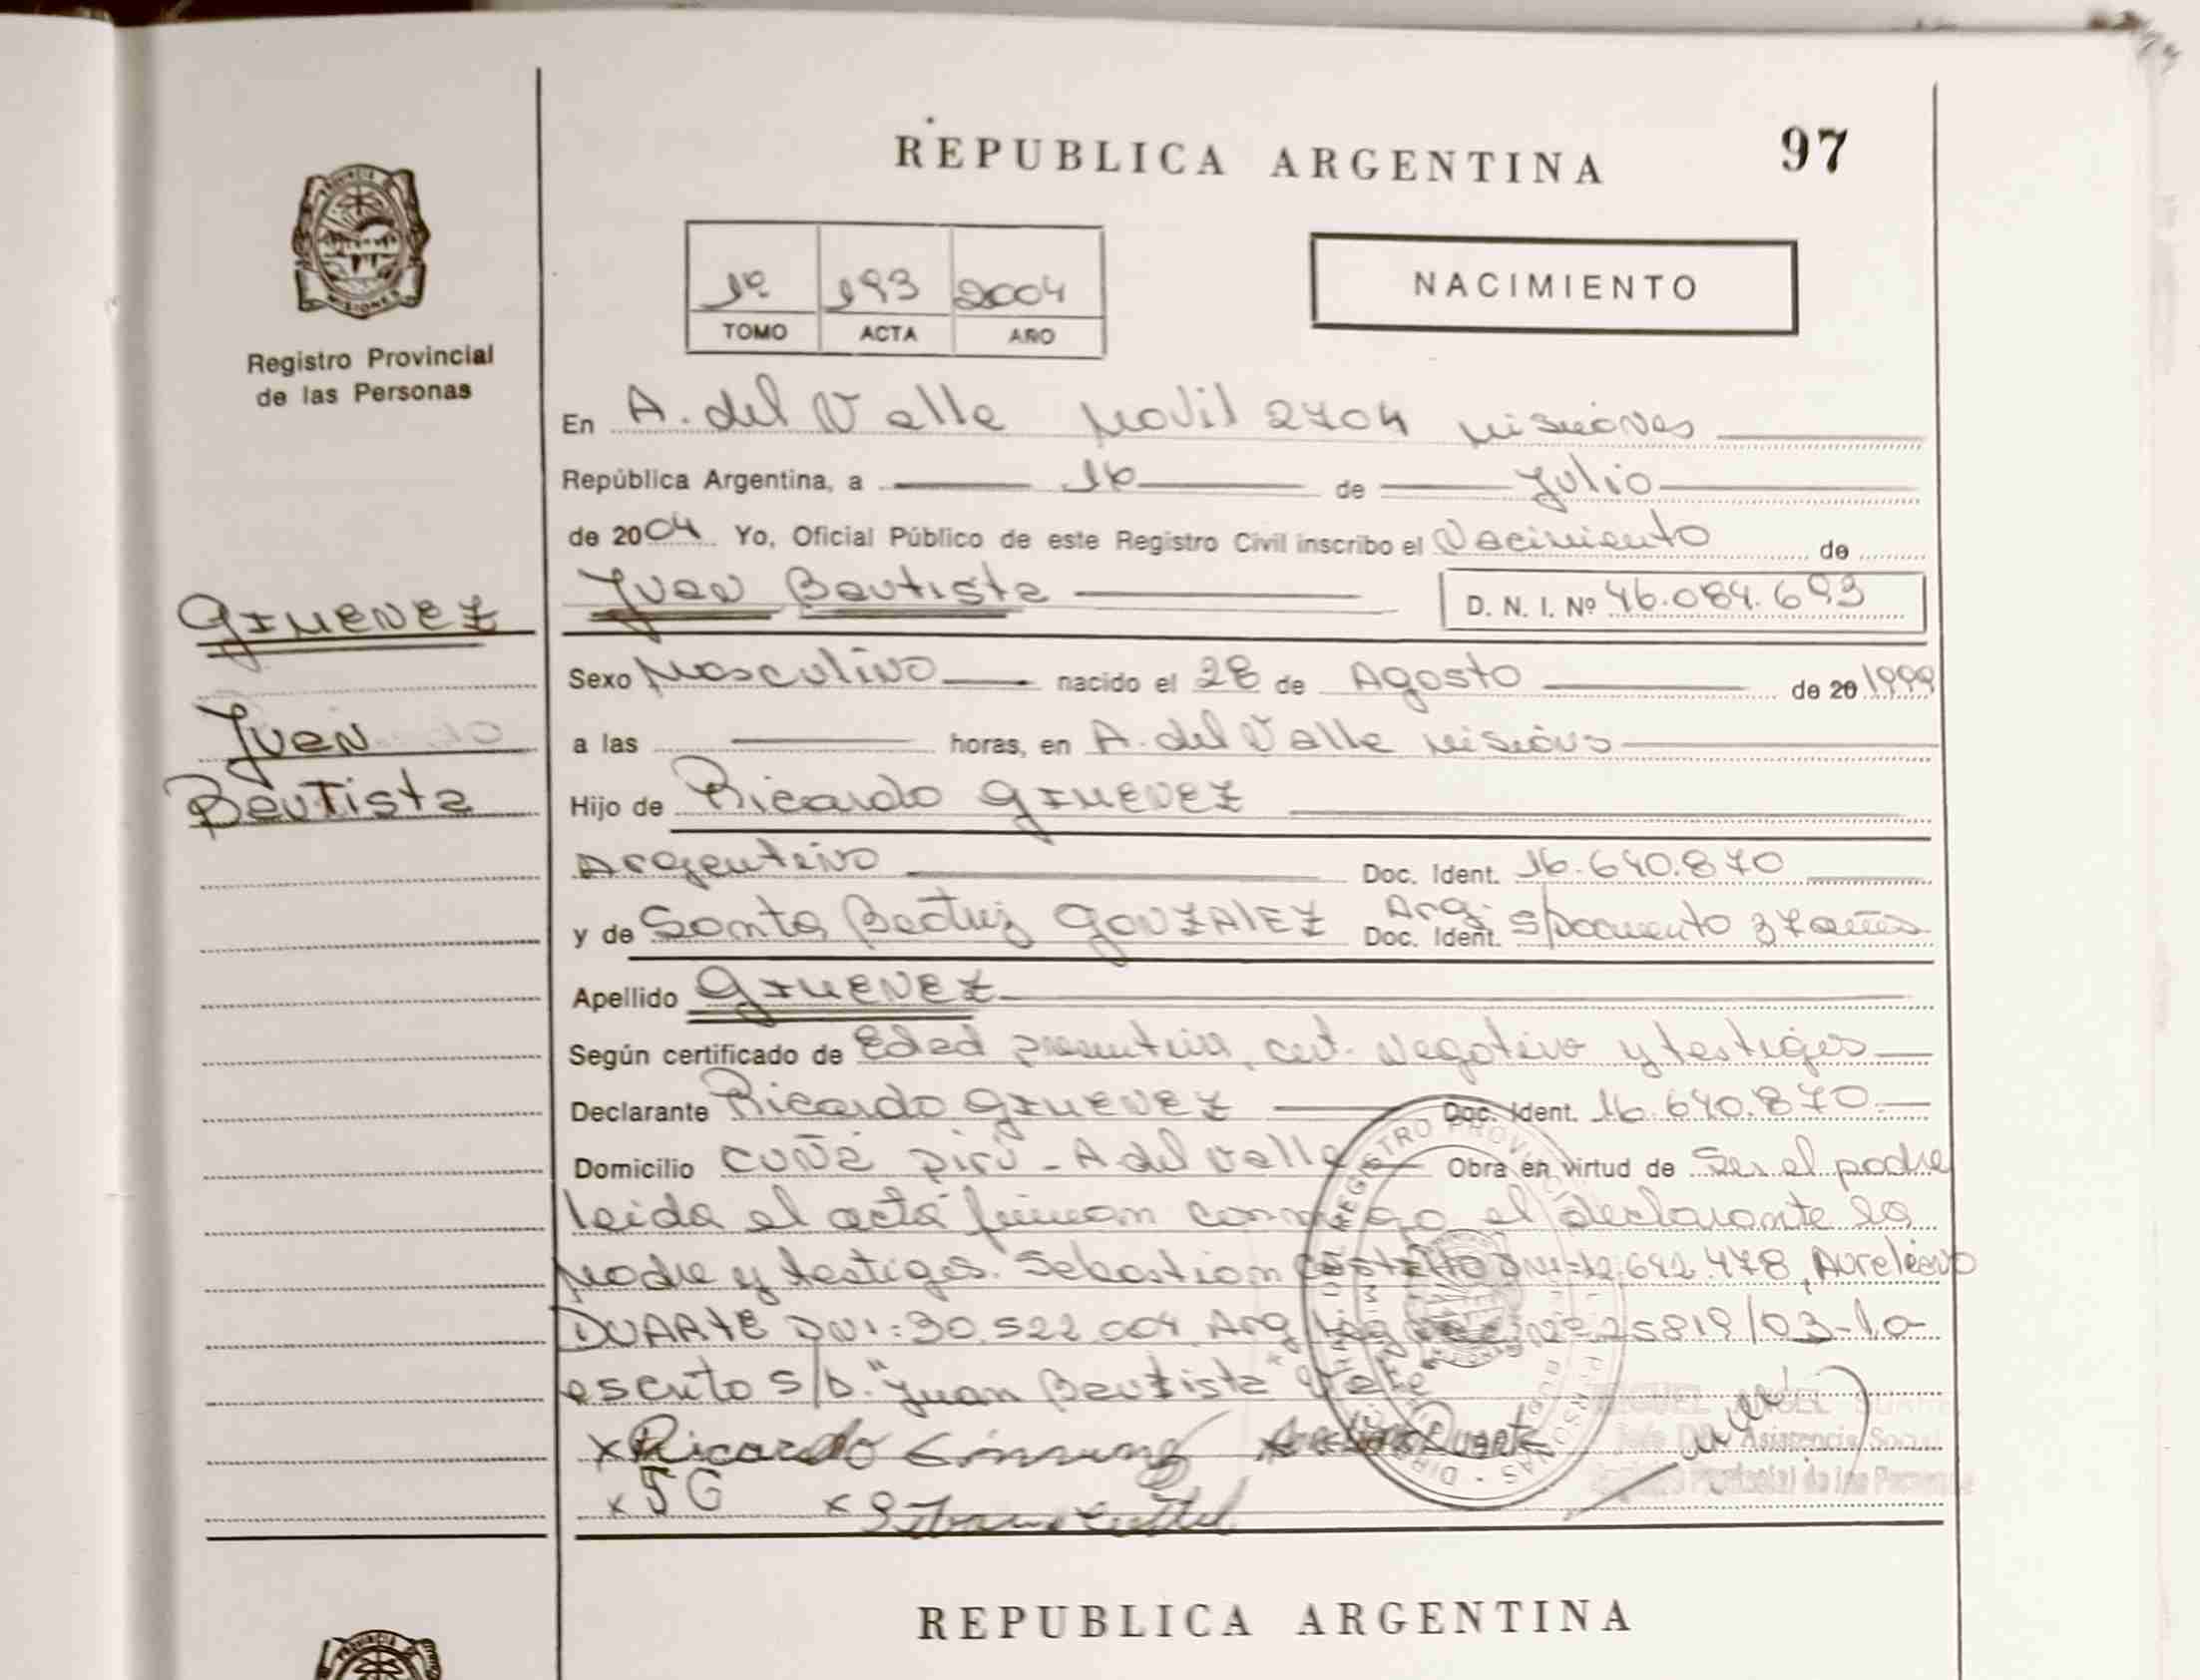 REPUBLICA ARGENTINA
97
1º 193 2004
TOMO ACTA AÑO
NACIMIENTO
Registro Provincial
de las Personas
En A. del Valle Movil 2704 Misiones
República Argentina, a 16 de Julio
de 2004 Yo, Oficial Público de este Registro Civil inscribo el Nacimiento de
Juan Bautista D. N. I. Nº 46.084.693
GIMENEZ
Juan
Bautista
Sexo Masculino nacido el 28 de Agosto de 20 1999
a las horas, en A. del Valle Misiones
Hijo de Ricardo GIMENEZ
Argentino Doc. Ident. 16.640.870
y de Santa Beatriz GONZALEZ Arg. Doc. Ident. s/Documento 37 años
Apellido GIMENEZ
Según certificado de Edad presuntiva, cert. Negativo y testigos
Declarante Ricardo GIMENEZ Doc. Ident. 16.640.870
Domicilio Cuña Pirú - A del Valle Obra en virtud de Ser el padre
leida el acta firman conmigo el declarante la
Madre y testigos. Sebastian DNI 12.642.478, Aureliano
DUARTE DNI: 30.522.004 Arg Nº 25819/03 - lo
escrito s/b. "Juan Bautista"
x Ricardo
x J G x
REPUBLICA ARGENTINA